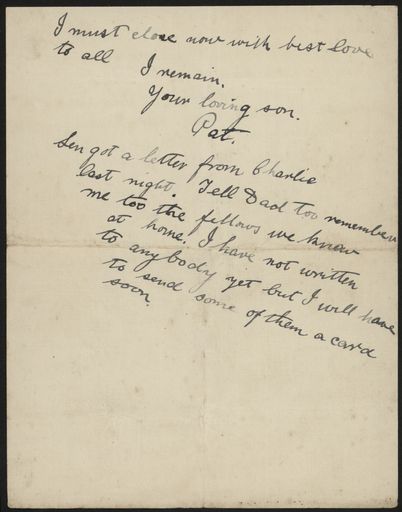 I must close now with best love
to all
I remain.
Your loving son.
Pat.
Len got a letter from Charlie
last night. Tell Dad too remember
me too the fellows we knew
at home. I have not written
to anybody yet but I will have
to send some of them a card
soon.